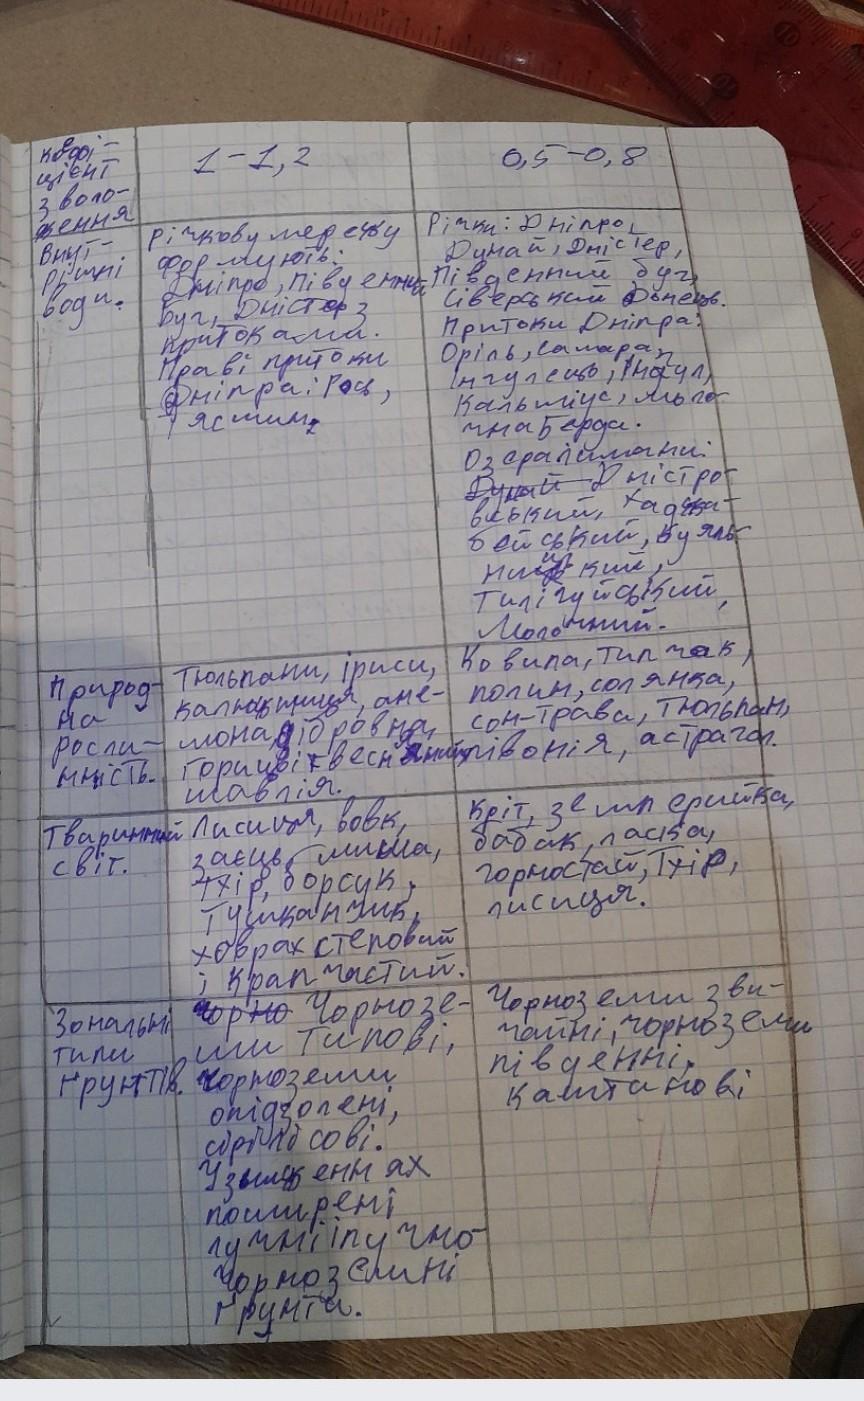 коефі-
цієнт
зволо-
ження
1-1,2
0,5-0,8
Внут-
рішні
води.
Річкову мережу
формують:
Дніпро, Південний
Буг, Дністер з
притоками.
Праві притоки
Дніпра: Рось,
Тясмин.
Річки: Дніпро,
Дунай, Дністер,
Південний буг,
Сіверський Донець.
Притоки Дніпра:
Оріль, Самара,
Інгулець, Інгул,
Кальміус, Моло-
чна Берда.
Озера лимани:
Дунай Дністро-
вський, Хаджи-
бейський, Куяль-
ницький,
Тилігульський,
Молочний.
Природ-
на
росли-
нність.
Тюльпани, іриси,
калюжниця, ане-
мона дібровна,
горицвіт весняний
шавлія.
Ковила, типчак,
полин, солянка,
сон-трава, тюльпан,
півонія, астрагал.
Тваринний
світ.
Лисиця, вовк,
заєць, миша,
тхір, борсук,
Тушканчик,
ховрах степовий
і крапчастий.
Кріт, землерийка,
бабак, ласка,
горностай, Тхір,
лисиця.
Зональні
типи
ґрунтів.
чорно Чорнозе-
ми Типові,
чорноземи
опідзолені,
сірі лісові.
У зниженнях
поширені
лучні і лучно-
чорноземині
ґрунти.
Чорноземи зви-
чайні, чорноземи
південні,
каштанові